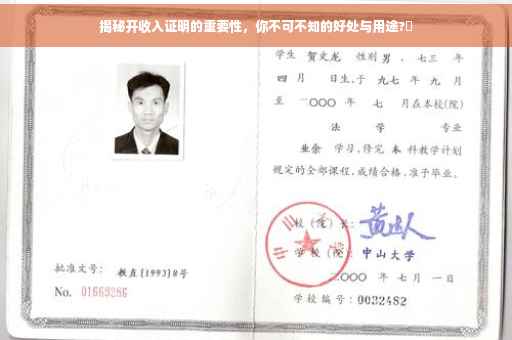 揭秘开收入证明的重要性，你不可不知的好处与用途?
学生 贺文龙 性别男，七三 年
四 月 日生,于 九七 年 九 月
至 二〇〇〇 年 七 月在本校(院)
法 学 专业
业余 学习,修完 本 科教学计划
规定的全部课程,成绩合格,准予毕业。
校(院)长:
学校(院): 中山大学
二〇〇〇 年 七 月 一 日
批准文号: 教直[1993]8号
No. 01669286
学校编号: 0032482